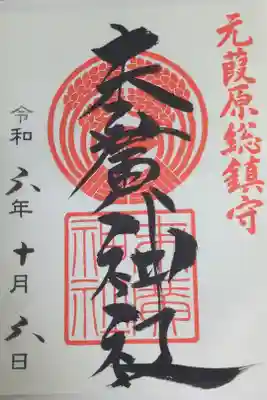 元葭原総鎮守
末廣神社
令和六年十月六日